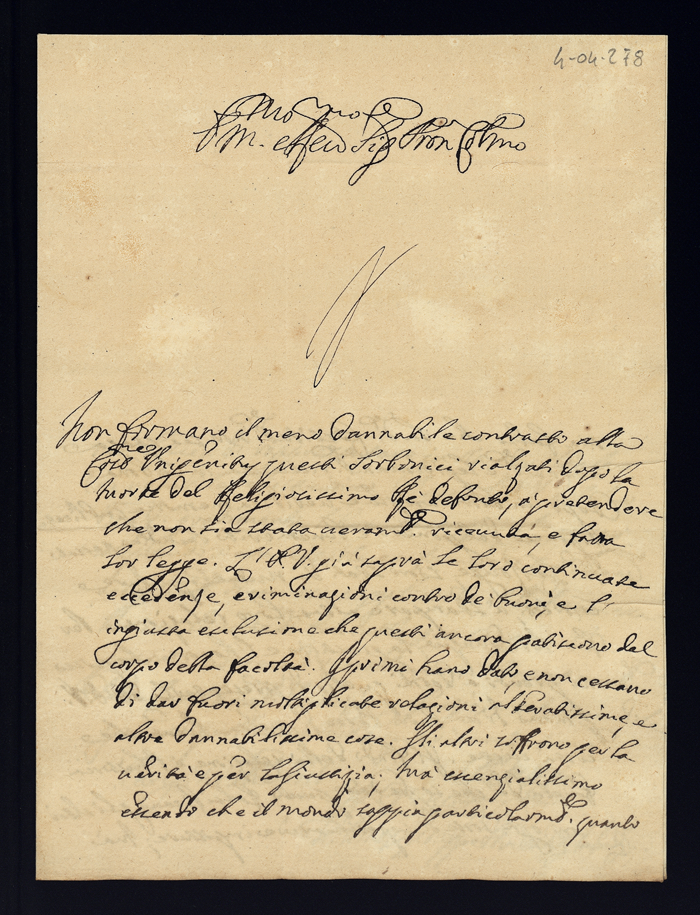 4-04-278
Non formano il meno dannabile contrasto alla
Unigenitus questi Sorbonici rialzati dopo la
morte del Religiosissimo Rè defonto, a pretendere
che non sia stata veramte. ricevuta, e fatta
lor legge. già saprà le loro continuate
eccedenze, e criminazioni contro de' buoni, e l'
ingiusta esclusione che questi ancora patiscono dal
corpo della facoltà. I primi hano dato, e non cessano
di dar fuori moltiplicate relazioni alteratissime, e
altre dannabilissime cose. Gli altri soffrono per la
verità e per la giustizia; mà essenzialissimo
essendo che il mondo sappia particolarmte. quanto